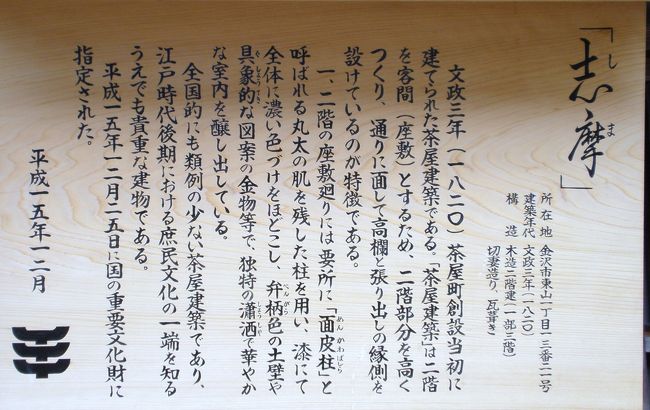 「志摩」
しま
所在地 金沢市東山一丁目一三番二一号
建築年代 文政三年(一八二〇)
構造 木造二階建(一部三階)
切妻造り、瓦葺き
文政三年(一八二〇)茶屋町創設当初に
建てられた茶屋建築である。「茶屋建築」は二階
を客間(座敷)とするため、二階部分を高く
つくり、通りに面して高欄と張り出しの縁側を
設けているのが特徴である。
一、二階の座敷廻りには要所に「面皮柱」と
めんかわばしら
呼ばれる丸太の肌を残した柱を用い、漆にて
全体に濃い色づけをほどこし、弁柄色の土壁や
べんがら
具象的な図案の金物等で、独特の瀟洒で華やか
ぐしょうてき
しょうしゃ
な室内を醸し出している。
全国的にも類例の少ない茶屋建築であり、
江戸時代後期における庶民文化の一端を知る
うえでも貴重な建物である。
平成一五年一二月二五日に国の重要文化財に
指定された。
平成一五年一二月